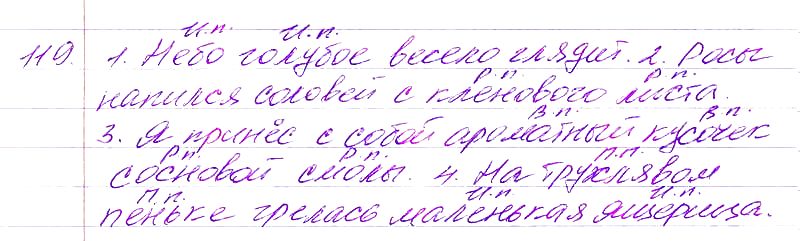 И.п. И.п.
119. 1. Небо голубое весело глядит. 2. Росы
Р.п. Р.п.
напился соловей с кленового листа.
В.п. В.п.
3. Я принёс с собой ароматный кусочек
Р.п. Р.п.
сосновой смолы. 4. На трухлявом
П.п.
П.п. И.п. И.п.
пеньке грелась маленькая ящерица.